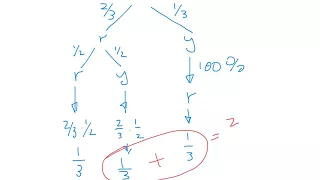 2/3 1/3
r y
1/2 1/2 100%
r y r
2/3 · 1/2 2/3 · 1/2
1/3 1/3 + 1/3 = 2